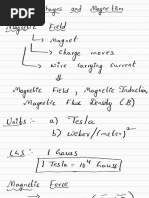 Moving Charges and Magnetism
Magnetic Field
↳ Magnet
↳ Charge moves
↳ wire carrying current
⇓
Magnetic Field, Magnetic Induction,
Magnetic Flux Density (B)
Units:- a) Tesla
b) Weber/(meter)²
CGS:- 1 Gauss
1 Tesla = 10⁴ Gauss
Magnetic Force